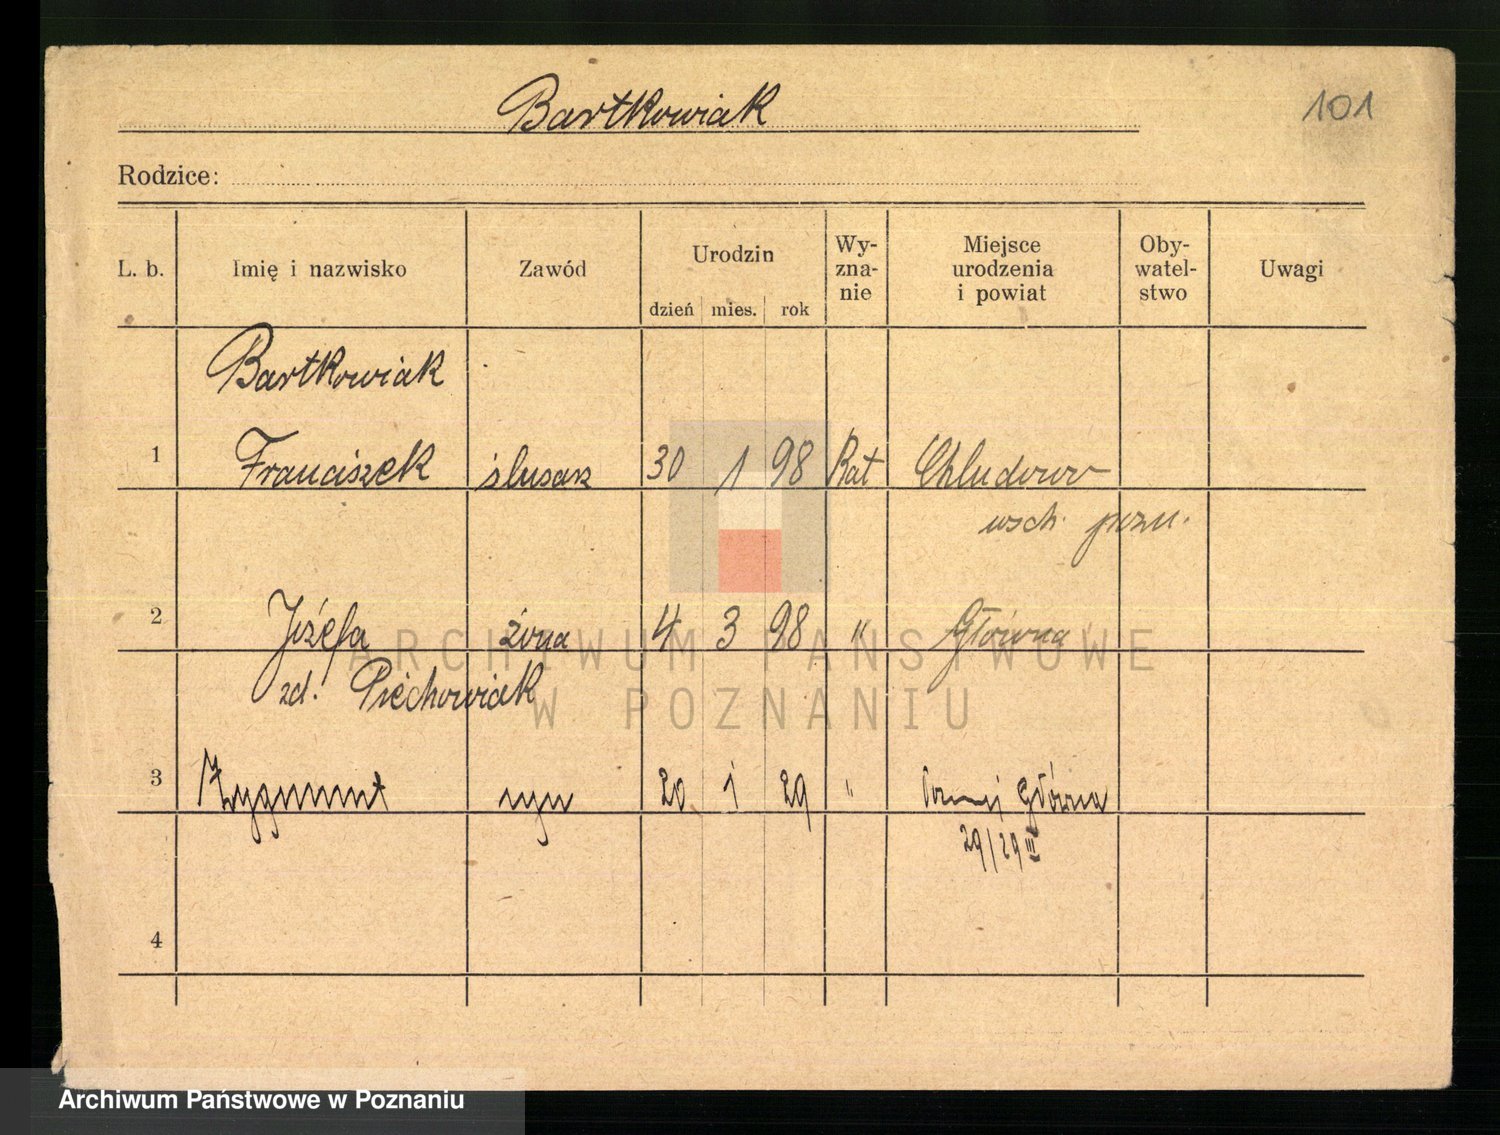 Bartkowiak
101
Rodzice:
L. b. Imię i nazwisko Zawód Urodzin dzień mies. rok Wy-zna-nie Miejsce urodzenia i powiat Oby-watel-stwo Uwagi
Bartkowiak
1 Franciszek ślusarz 30 1 98 Kat Chludowo
wsch. pozn.
2 Józefa żona 4 3 98 " Główna
zd. Piechowiak
3 Zygmunt syn 20 1 29 " Główna
29/29 III
4
ARCHIWUM PAŃSTWOWE
W POZNANIU
Archiwum Państwowe w Poznaniu